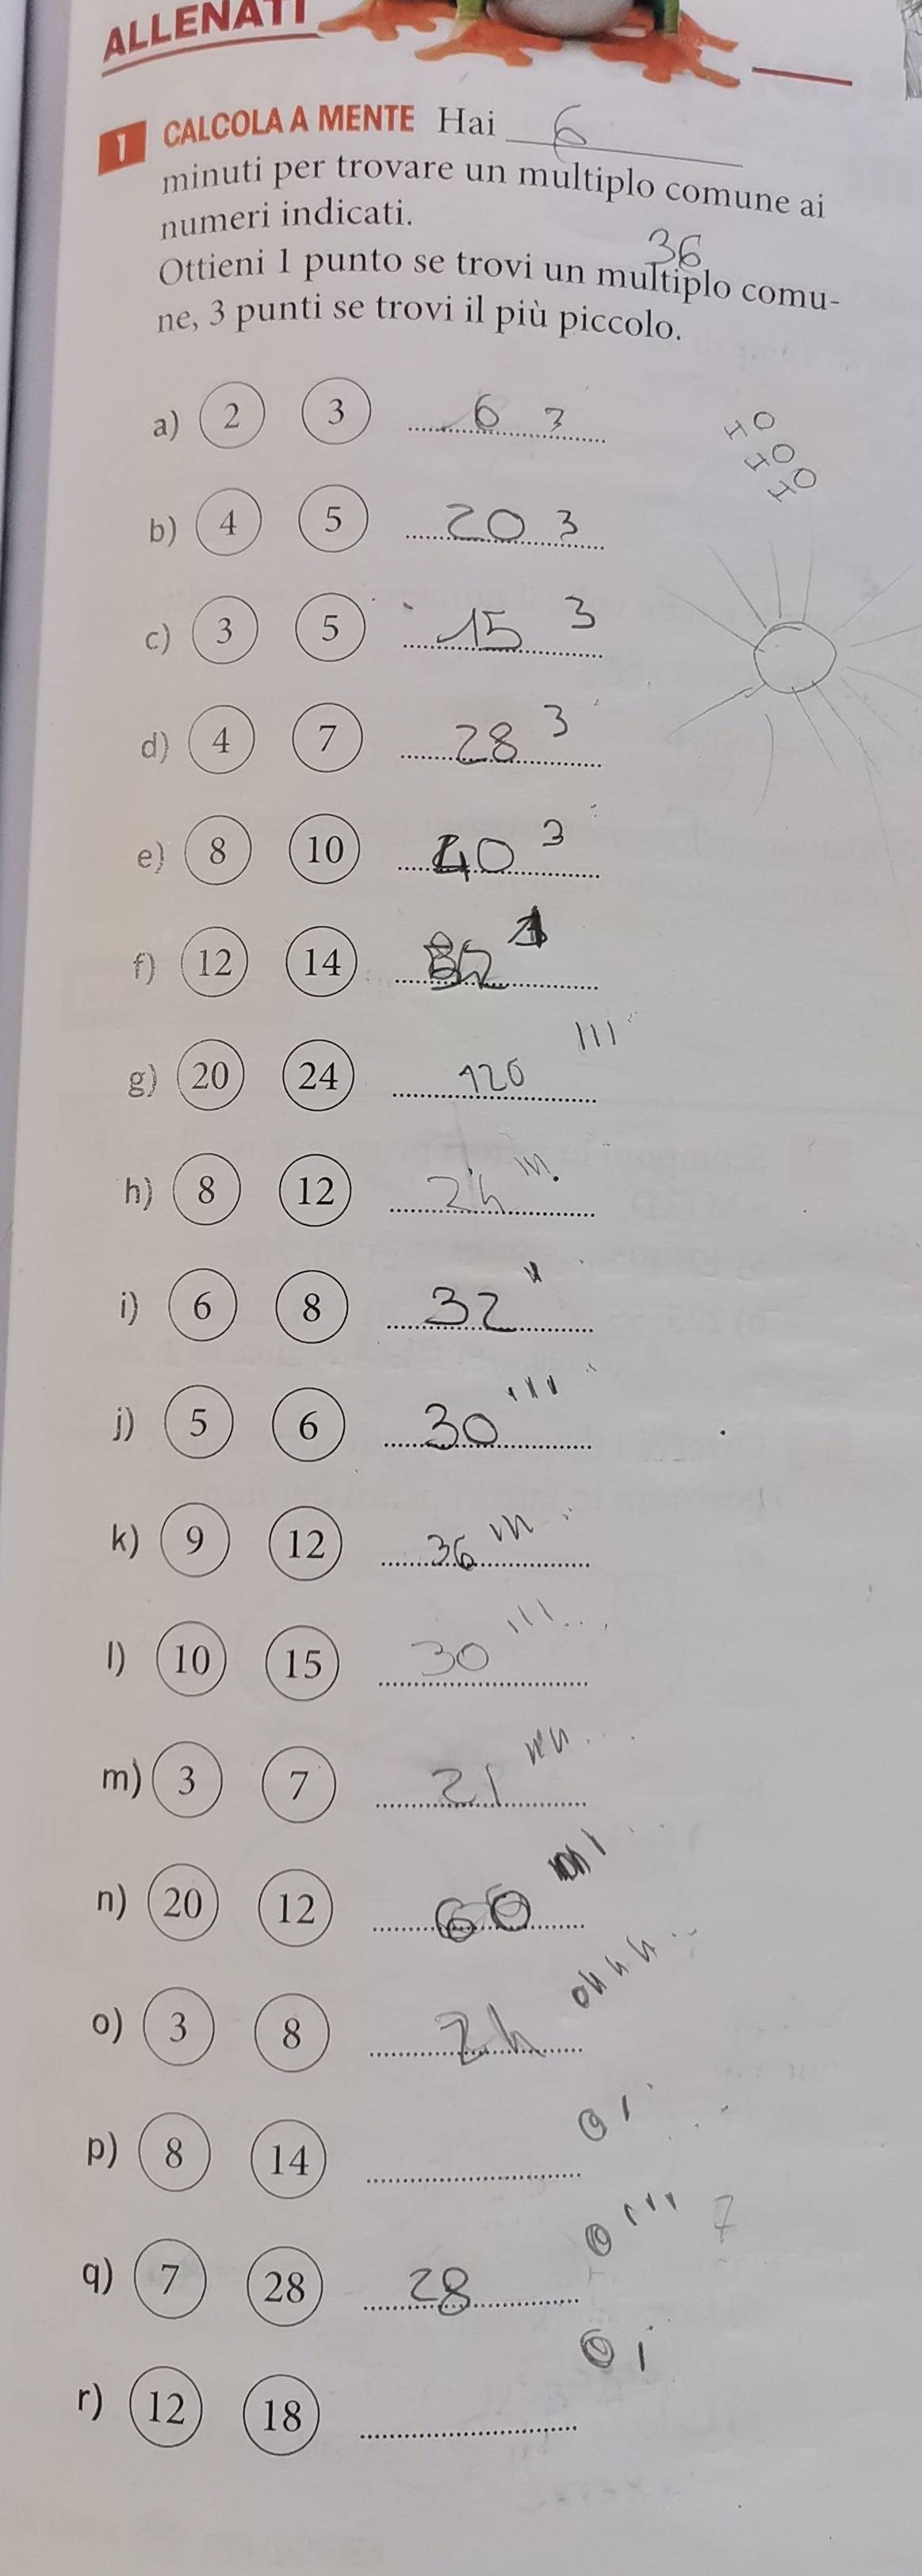 ALLENATI
1 CALCOLA A MENTE Hai 6
minuti per trovare un multiplo comune ai
numeri indicati.
36
Ottieni 1 punto se trovi un multiplo comu-
ne, 3 punti se trovi il più piccolo.
a) 2 3 6 3
b) 4 5 20 3
c) 3 5 15 3
d) 4 7 28 3
e) 8 10 40 3
f) 12 14
g) 20 24 120 111
h) 8 12 24
i) 6 8 32
j) 5 6 30 111
k) 9 12 36
l) 10 15 30 111
m) 3 7 21
n) 20 12 60
o) 3 8 24
p) 8 14
q) 7 28 28 7
r) 12 18